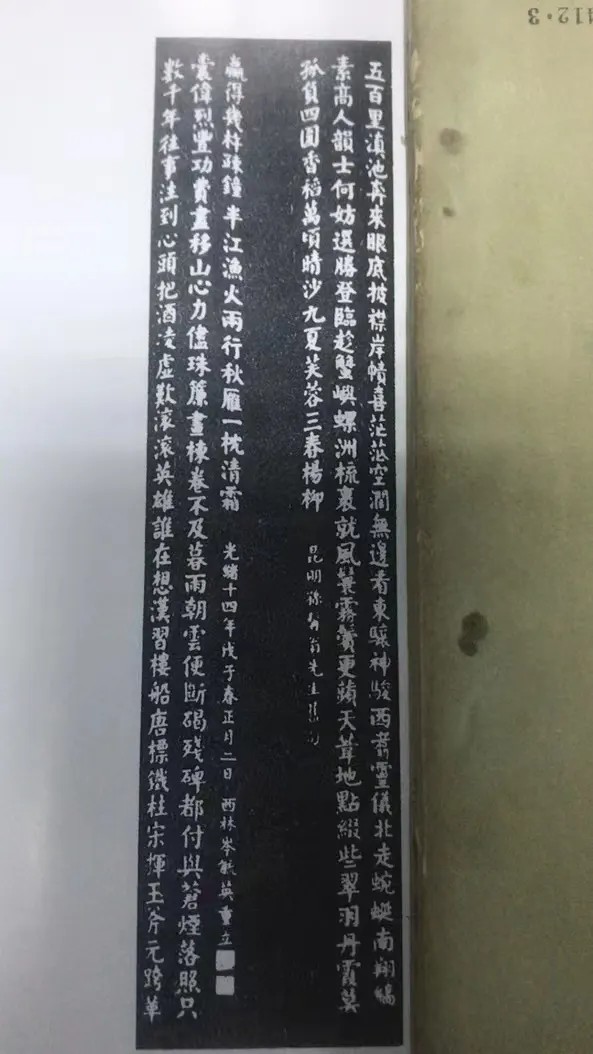 五百里滇池奔來眼底披襟岸幘喜茫茫空闊無邊看東驤神駿西翥靈儀北走蜿蜒南翔縞
素高人韻士何妨選勝登臨趁蟹嶼螺洲梳裹就風鬟霧鬢更蘋天葦地點綴些翠羽丹霞莫
孤負四圍香稻萬頃晴沙九夏芙蓉三春楊柳 昆明孫髯翁先生
數千年往事注到心頭把酒凌虛歎滾滾英雄誰在想漢習樓船唐標鐵柱宋揮玉斧元跨革
囊偉烈豐功費盡移山心力儘珠簾畫棟卷不及暮雨朝雲便斷碣殘碑都付與蒼煙落照只
贏得幾杵疎鐘半江漁火兩行秋雁一枕清霜 光緒十四年戊子春正月二日 西林岑毓英重立
412·3